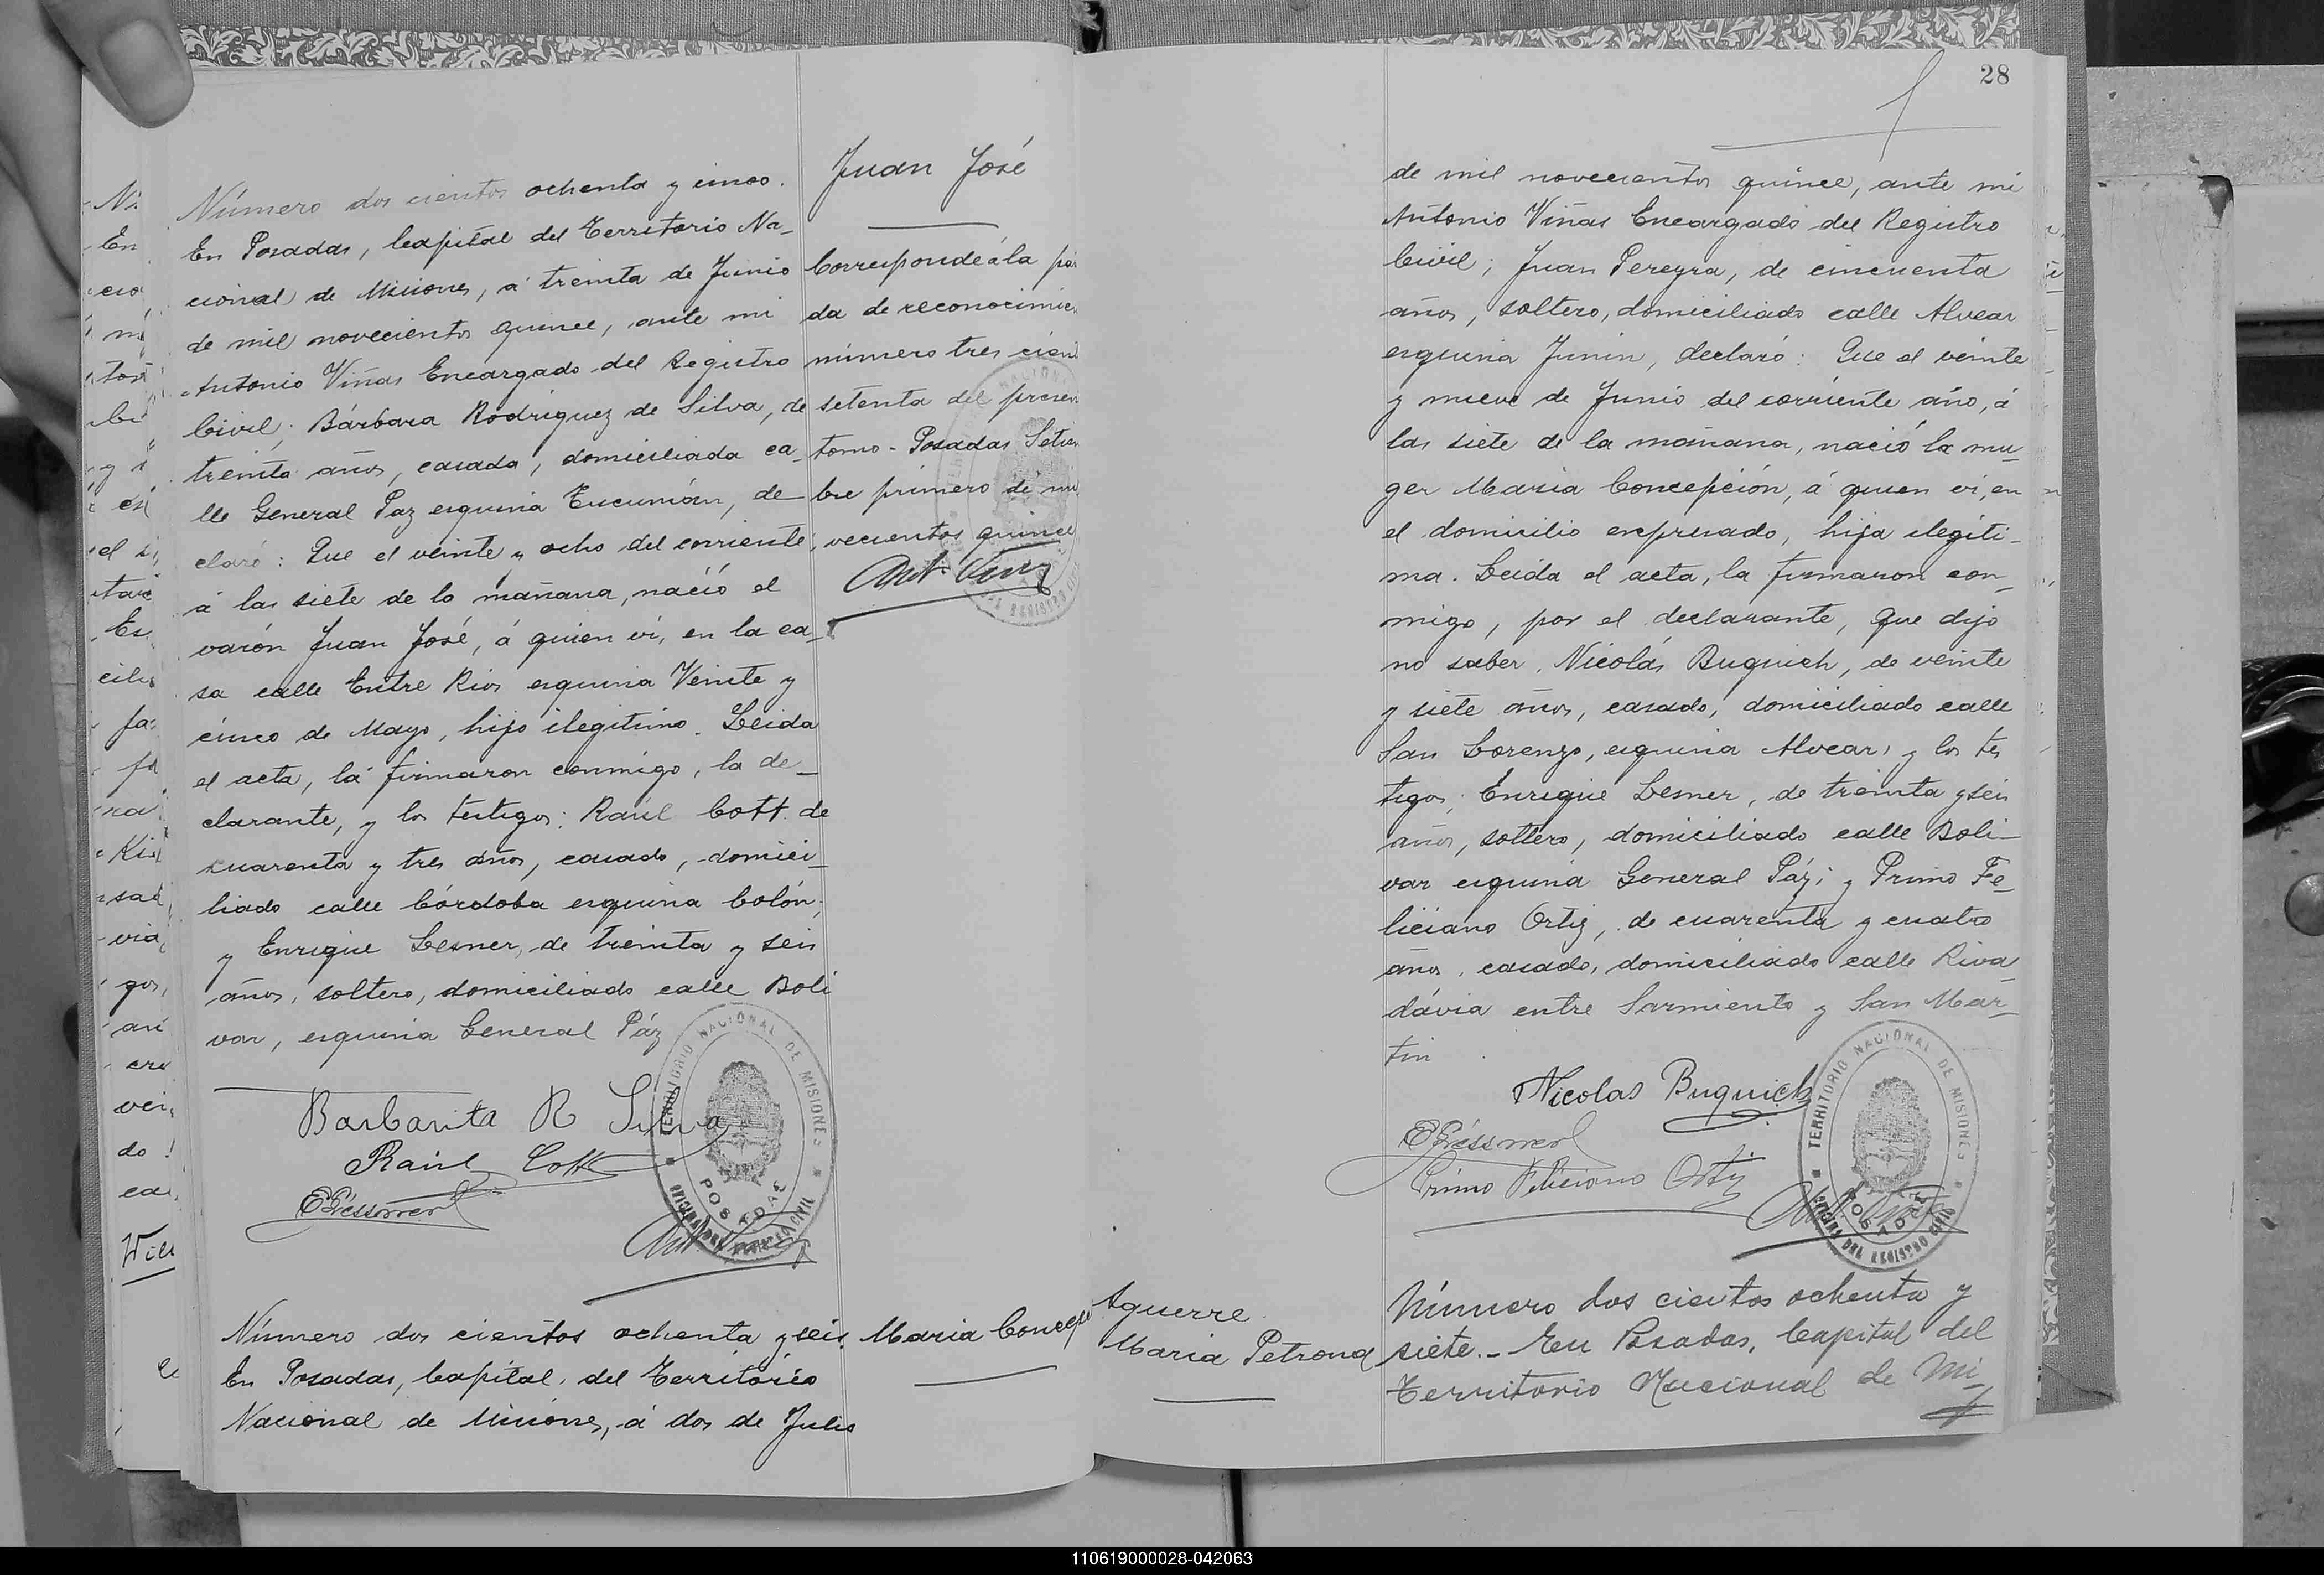 Número dos cientos ochenta y cinco.
En Posadas, Capital del Territorio Na-
cional de Misiones, á treinta de Junio
de mil novecientos quince, ante mi
Antonio Viñas Encargado del Registro
Civil; Bárbara Rodriguez de Silva, de
treinta años, casada, domiciliada ca-
lle General Paz esquina Tucumán, de-
claró: Que el veinte y ocho del corriente
á las siete de la mañana, nació el
varón Juan José, á quien ví, en la ca-
sa calle Entre Rios esquina Veinte y
cinco de Mayo, hijo ilegitimo. Leida
el acta, la firmaron conmigo, la de-
clarante, y los testigos: Raúl Cott. de
cuarenta y tres años, casado, domici-
liado calle Córdoba esquina Colón;
y Enrique Lesner, de treinta y seis
años, soltero, domiciliado calle Boli
var, esquina General Páz
Barbarita R Silva
Raúl Cott
TERRITORIO NACIONAL DE MISIONES
POSADAS
OFICINA DEL REGISTRO CIVIL
Número dos cientos ochenta y seis.
En Posadas, Capital, del Territorio
Nacional de Misiones, á dos de Julio
Juan José
Corresponde á la par
da de reconocimien
número tres cient
setenta del presen
tomo - Posadas Setie
bre primero de mi
vecientos quince
Maria Concep
28
de mil novecientos quince, ante mi
Antonio Viñas Encargado del Registro
Civil; Juan Pereyra, de cincuenta
años, soltero, domiciliado calle Alvear
esquina Junin, declaró: Que el veinte
y nueve de Junio del corriente año, á
las siete de la mañana, nació la mu-
ger Maria Concepción, á quien ví, en
el domicilio expresado, hija ilegíti-
ma. Leida el acta, la firmaron con-
migo, por el declarante, que dijo
no saber, Nicolás Buquich, de veinte
y siete años, casado, domiciliado calle
San Lorenzo, esquina Alvear; y los tes
tigos; Enrique Lesner, de treinta y seis
años, soltero, domiciliado calle Boli-
var esquina General Páz; y Primo Fe-
liciano Ortiz, de cuarenta y cuatro
años, casado, domiciliado calle Riva
dávia entre Sarmiento y San Mar-
tin
Nicolas Buquich
Primo Feliciano Ortiz
TERRITORIO NACIONAL DE MISIONES
POSADAS
OFICINA DEL REGISTRO CIVIL
Aguerre
Maria Petrona
Número dos cientos ochenta y
siete.- En Posadas, Capital del
Territorio Nacional de Mi-
110619000028-042063